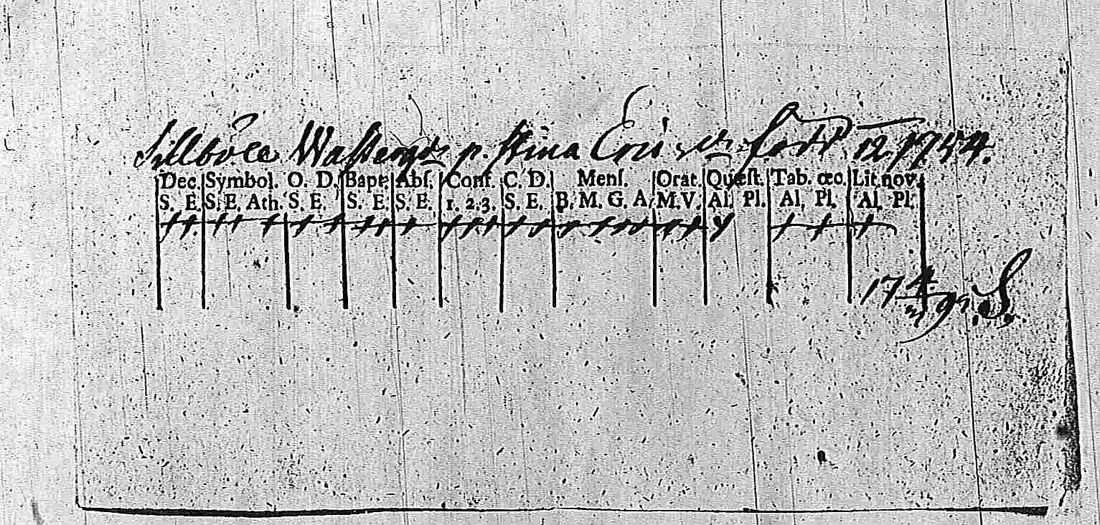 Sillböle Wastergårds p. Stina Erics dr född 12 1744.
Dec. Symbol. O. D. Bapt. Abs. Conf. C. D. Mens. Orat. Quæst. Tab. œc. Lit. nov.
S. E. S. E. Ath. S. E. S. E. S. E. 1. 2. 3. S. E. B. M. G. A. M. V. Al. Pl. Al. Pl. Al. Pl.
174 S.